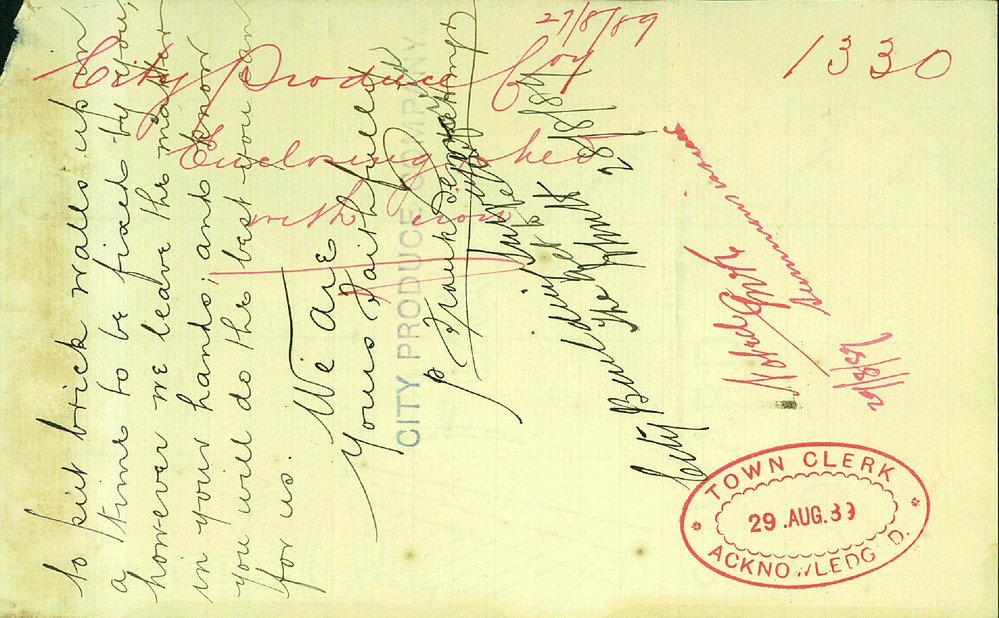 to put brick walls up in
a time to be fixed by you,
however we leave the matter
in your hands, and know
you will do the best you can
for us.
We are
Yours faithfully
CITY PRODUCE COMPANY.
p Frank
City Building
28/8/89
27/8/89
1330
City Produce Coy
Enclosing shed
with iron
Noted
29/8/89
TOWN CLERK
29.AUG.89
ACKNOWLEDG'D.